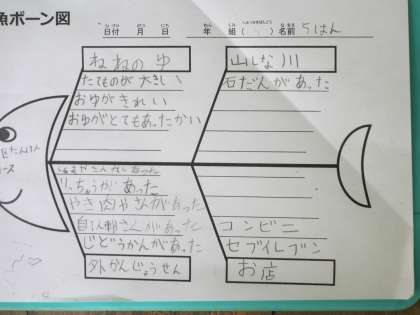 魚ボーン図
日付 月 日
年 組( ) 名前 5はん
ねねのゆ
たてものが大きしい
おゆがきれい
おゆがとてもあったかい
山しな川
石だんがあった
たんけん
コース
りっちょうがあった
やき肉やさんがあった
さんがあった
じどうかんがあった
外かんじょうせん
コンビニ
セブイレブン
お店